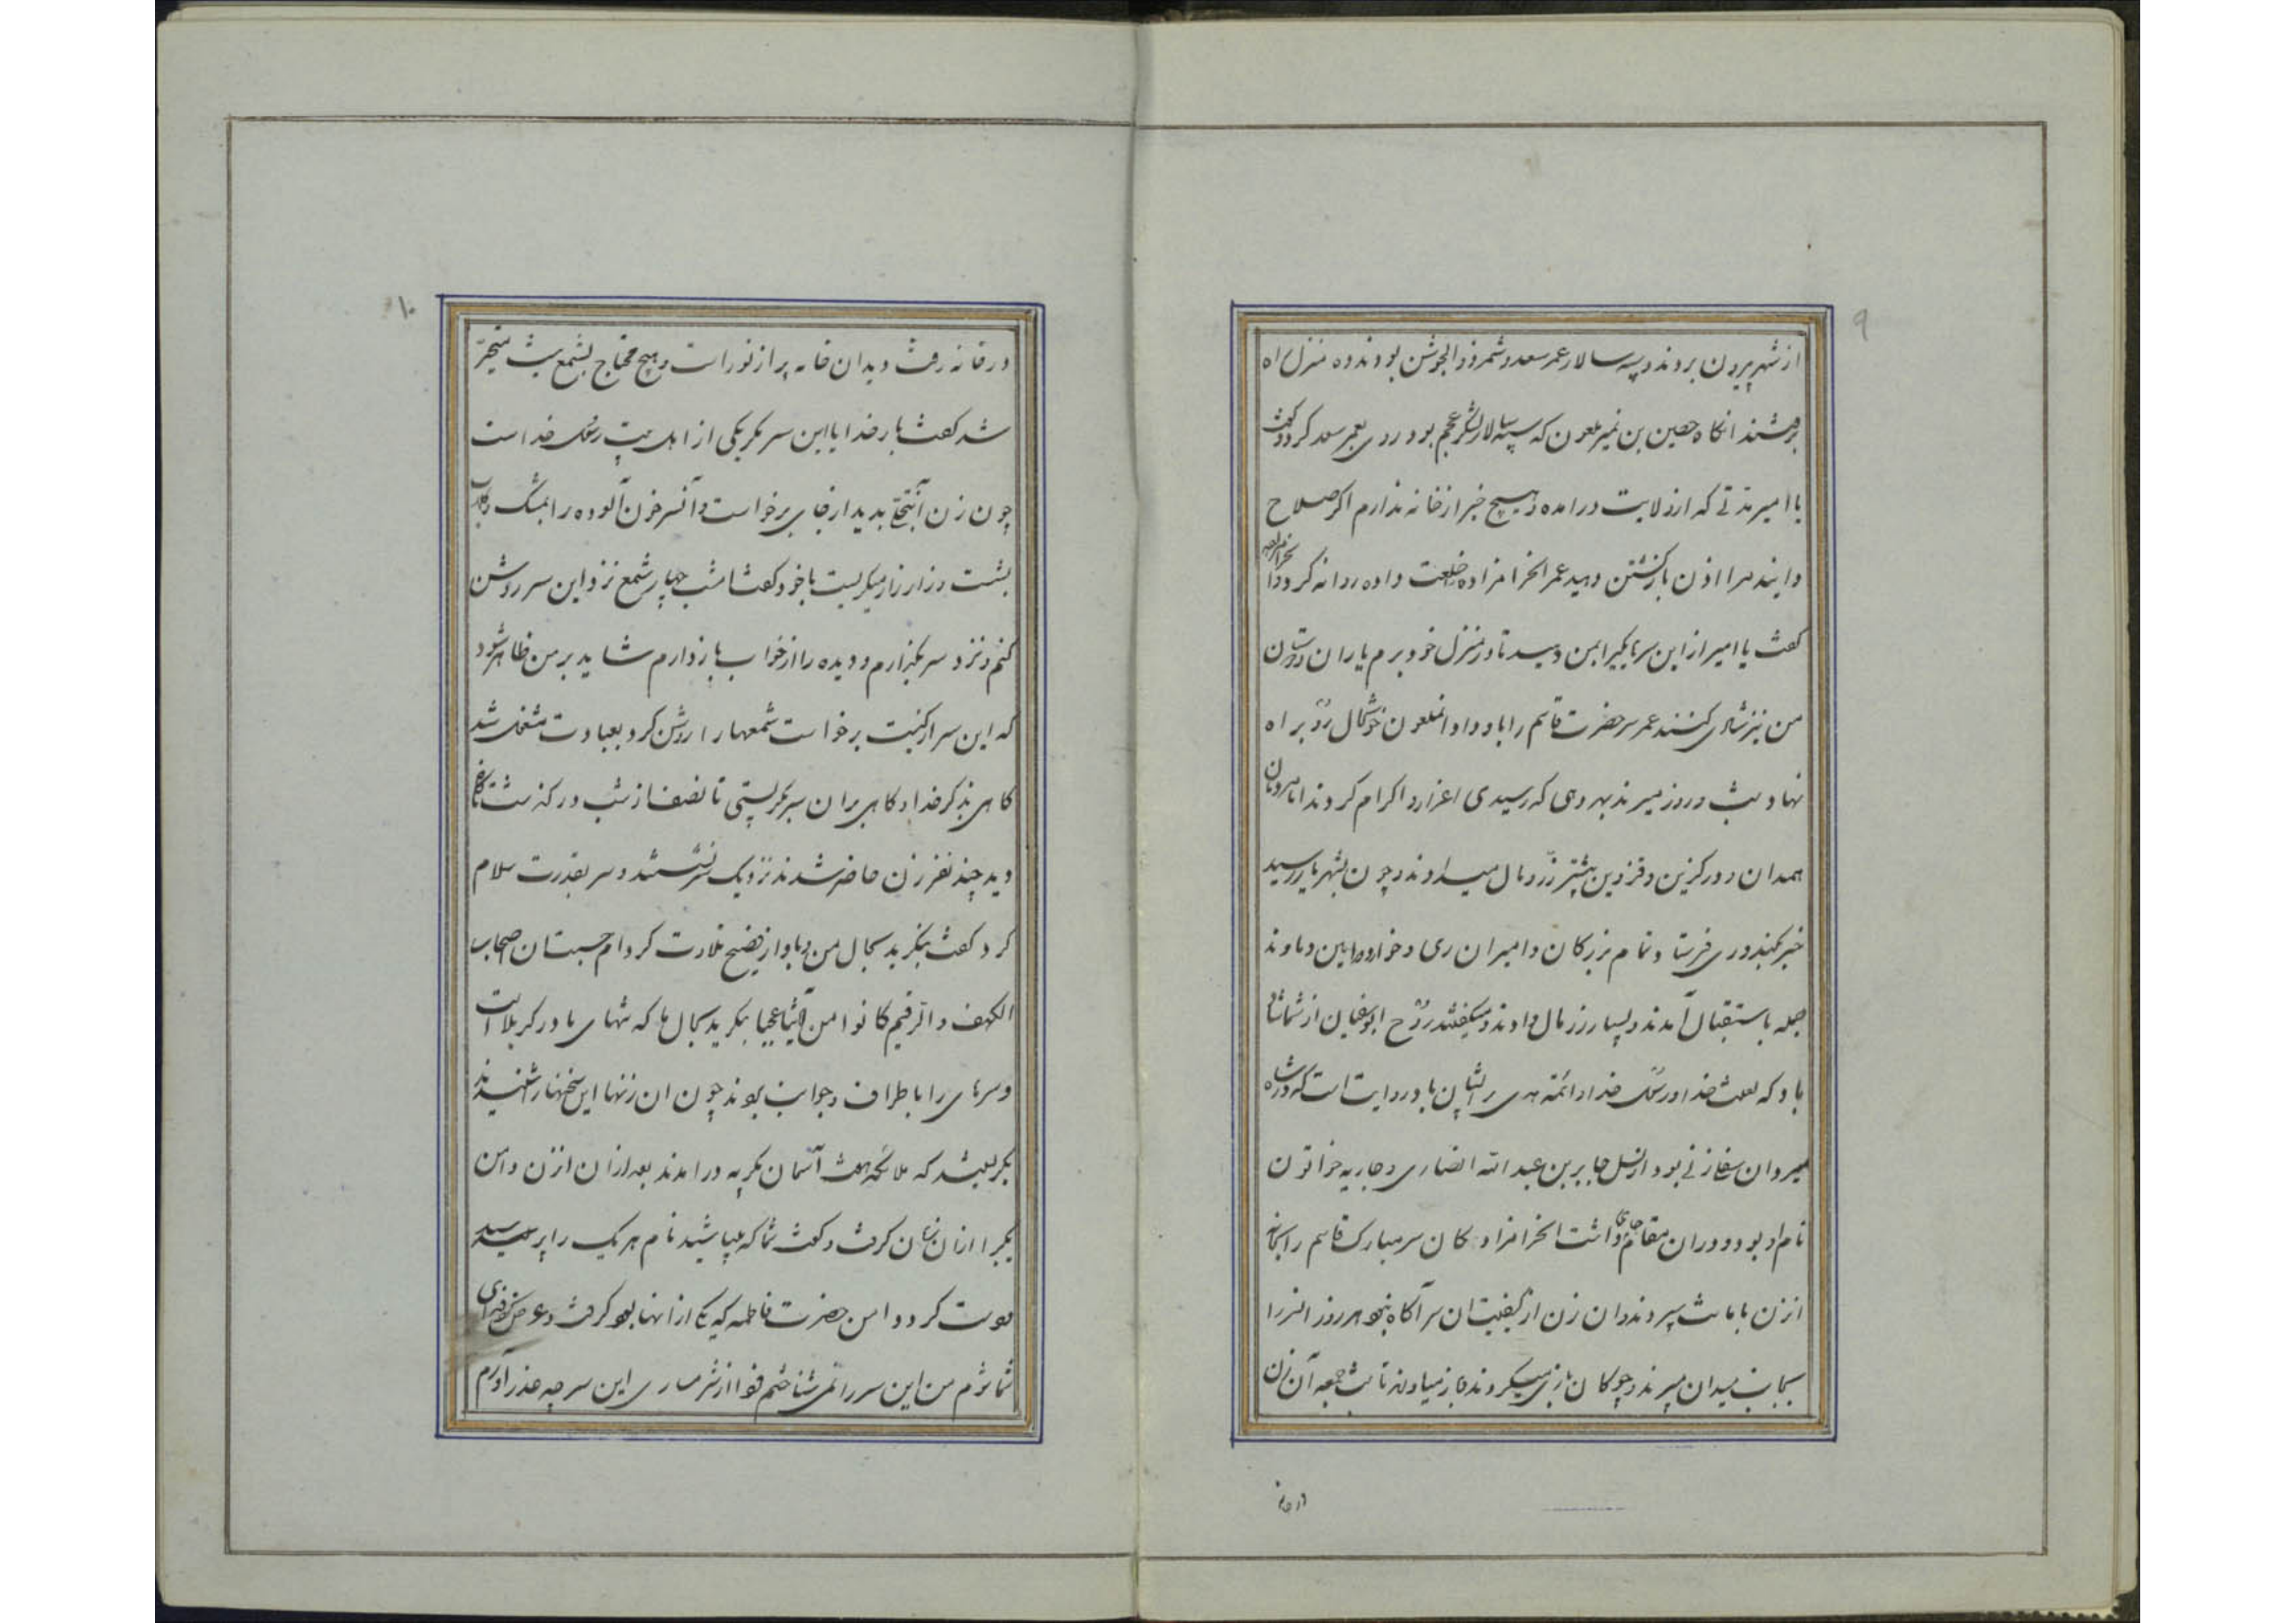 ۹
از شهر بیرون بردند و سپه سالار عمر سعد و شمر ذوالجوشن بودند و ده منزل راه
برفتند انگاه حصین بن نمیر ملعون که سپه سالار لشکر عجم بود روی بعمر سعد کرد و گفت
یا امیر مدتی که از ولایت در امده و هیچ خبر از خانه ندارم اکر صلاح
دانید مرا اذن بازکشتن دهید عمر الحرامزاده خلعت داده روانه کرد
گفت یا امیر از این سرها یکیرا بمن دهید تا در منزل خود برم یاران و دوستان
من نیز شادی کنند عمر سر حضرت قاسم را باو داد انملعون خوشحال رو براه
نهاد شب و روز میرفتند بهر دهی که رسیدی اعزاز و اکرام کردند
همدان و درکزین و قزوین بیشتر زر و مال میدادند و چون بشهر ری رسید
خبر بمردم ری فرستاد تمام بزرکان و امیران ری و خوار و ورامین و دماوند
جمله باستقبال آمدند و بسیار زر و مال دادند و میگفتند روح ابوسفیان از شما شاد
باد که لعنت خدا و رسول خدا و ائمه هدی بر ایشان باد و روایت است که در
میردان زنی بود از نسل جابر بن عبد الله انصاری و جاریه خواتون
نام او بود و در ان مقام جای داشت الحرامزادکان سر مبارک قاسم را بخانه
انزن بامانت سپردند و ان زن از کیفیت ان سر آکاه نبود هر روز انرا
بجانب میدان میبردند و چوکان بازی میکردند و باز میاوردند تا شب جمعه آن زن
در خانه
۱۰
در خانه رفت دید ان خانه پر از نور است و هیچ محتاج بشمع نیست متحیر
شد گفت بار خدایا این سر مکر یکی از اهل بیت رسول خداست
چون زن آنچنان بدید از جای برخواست و آنسر خون آلوده را بمشک و کلاب
بشست و زار زار میکریست با خود گفت امشب چهار شمع نزد این سر روشن
کنم و نزد سر بگذارم و دیده را از خواب باز دارم شاید بر من ظاهر شود
که این سر از کیست برخواست شمعها را روشن کرد و بعبادت مشغول شد
کاهی بذکر خدا و کاهی بر ان سر میکریستی تا نصف از شب در کذشت ناگاه
دید چند نفر زن حاضر شدند نزدیک سر نشستند و سر بقدرت سلام
کرد گفت بنکرید بحال من و باواز فصیح تلاوت کرد ام حسبت ان اصحاب
الکهف و الرقیم کانوا من آیاتنا عجبا بنکرید بحال ما که تنهای ما در کربلا است
و سرهای را باطراف و جوانب بردند چون ان زنها این سخنها را شنیدند
بکریستند که ملائکه هفت آسمان بکریه در امدند بعد از ان انزن دامن
یکیرا از ان زنان کرفت و گفت شما که میباشید نام هر یک را پرسید
دست کرد و دامن حضرت فاطمه که یکی از انها بود کرفت و عرض کرد فدای
شما شوم من این سر را نمی شناختم فردا از شرمساری این سر چه عذر آورم